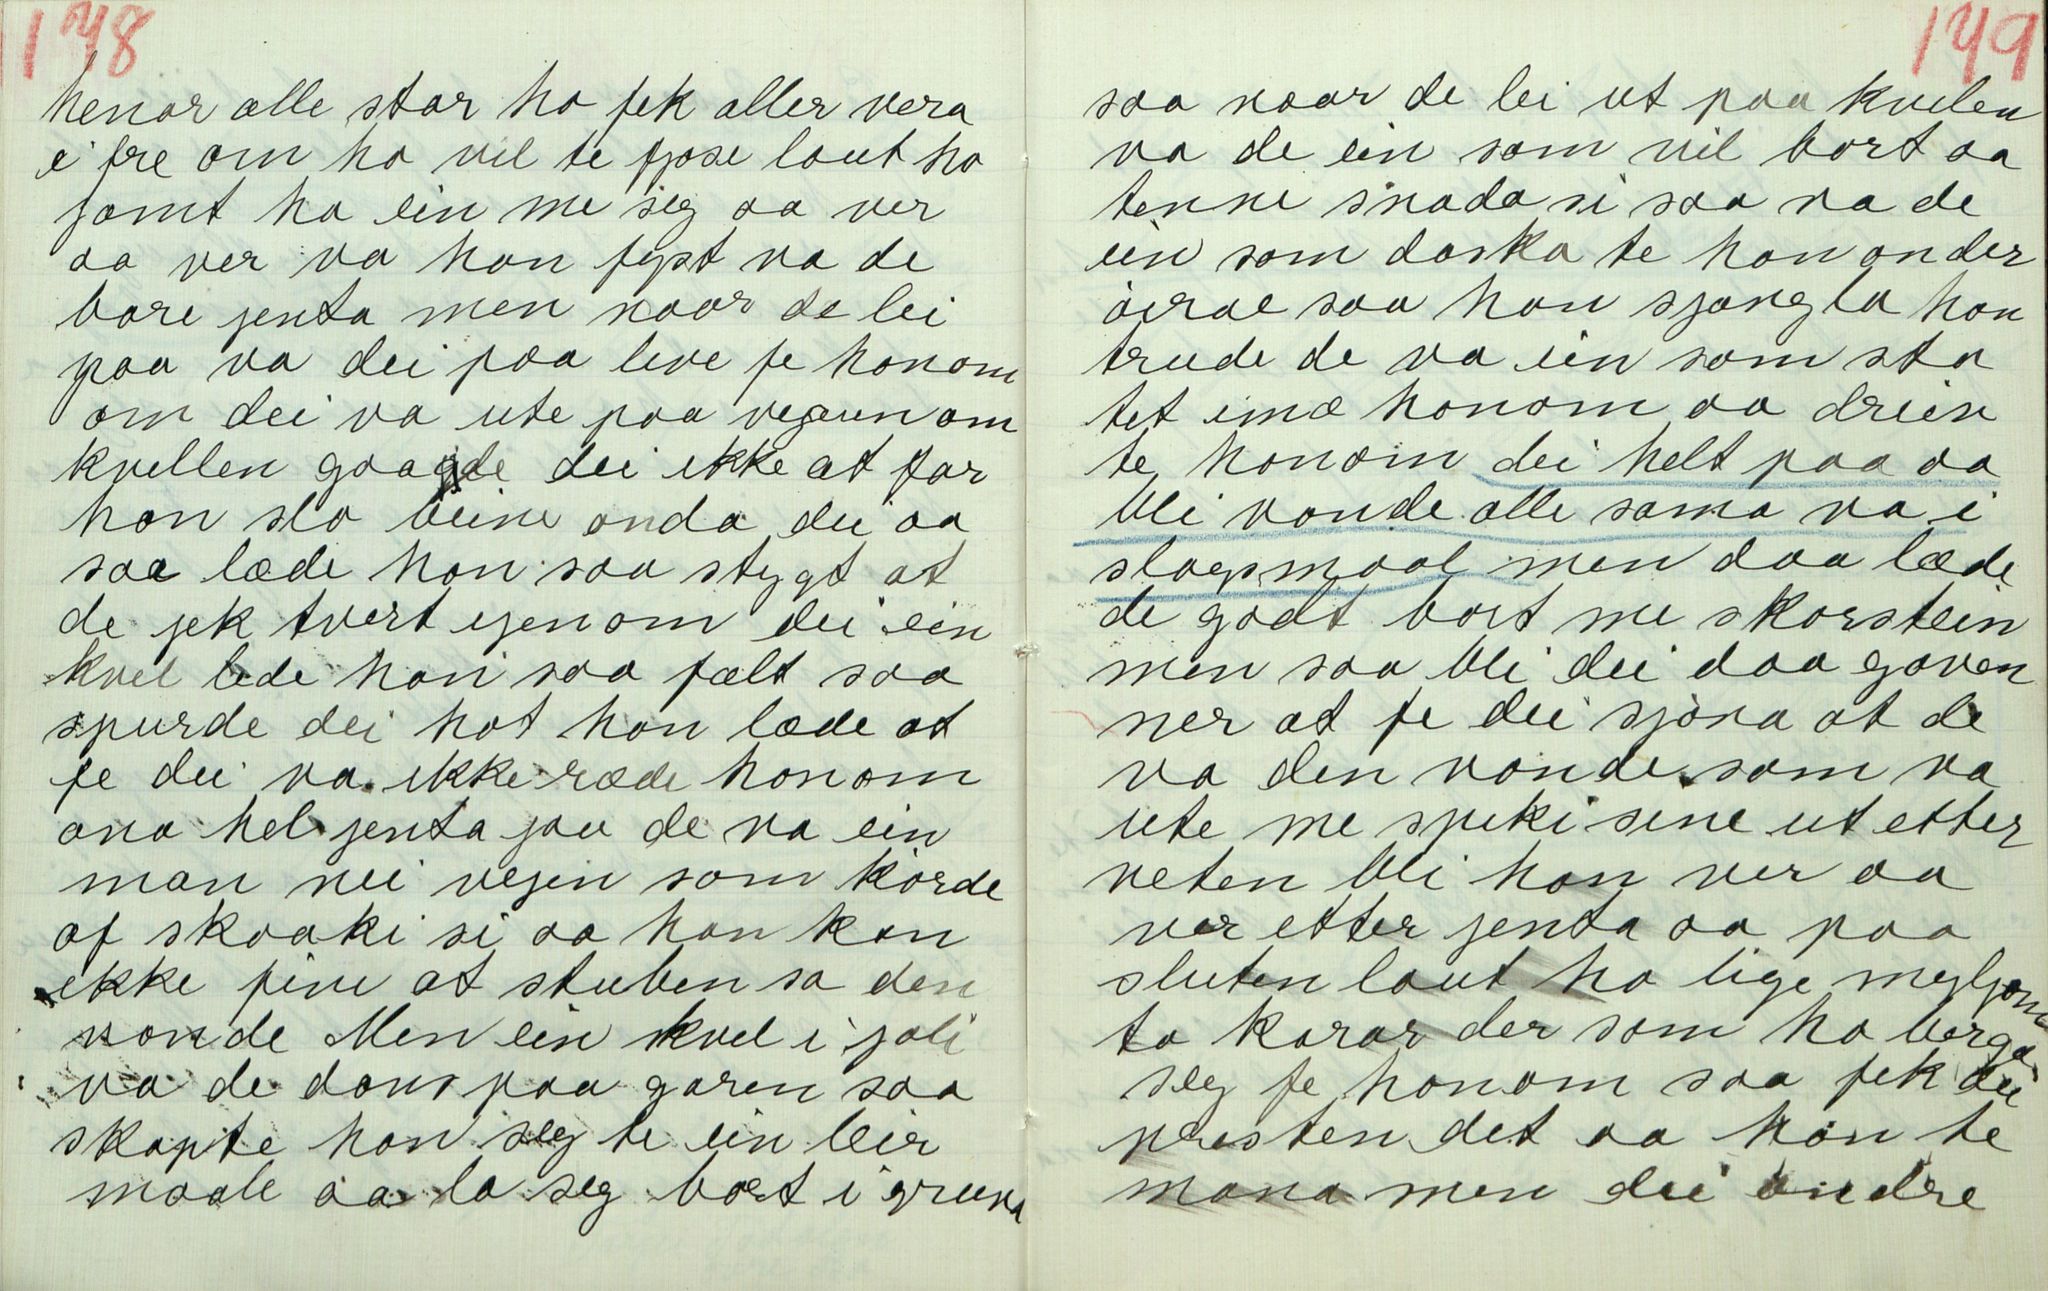 148
henar alle star ho fek aller vera
i fre om ho vil te fjose laut ho
jamt ha ein me seg aa ver
aa ver va han fyst va de
bare jenta men naar de lei
paa va dei paa leve fe honom
om dei va ute paa vegeun om
kvellen gaagde dei ikke at far
han slo beine onda dei aa
saa læde han saa stygt at
de jek tvert igenom dei ein
kvel lede han saa fælt saa
spurde dei hot han læde at
fe dei va ikke ræde honom
ana hel jenta jau de va ein
man nei vejen som körde
af skaaki si aa han kan
ekke fine at stuben sa den
vonde Men ein kvel i joli
va de dans paa garen saa
skapte han seg te ein leir
maale aa la seg bort i gruva
149
saa naar de lei ut paa kvelen
va de ein som vil bort aa
tenne snada si saa va de
ein som daska te han onder
öirae saa han sjangla han
trude de va ein som sta
tet imæ honom aa dreiv
te honom dei helt paa aa
bli vonde alle sama va i
slagsmaal men daa læde
de godt bort me skorstein
men saa bli dei daa gaven
ner at fe dei sjöna at de
va den vonde som va
ute me speki sine ut etter
veten bli han ver aa
ver etter jenta aa paa
sluten laut ho lige myljom
to karar der som ho berga
seg fe honom saa fek dei
presten det aa han te
mana men dei andre